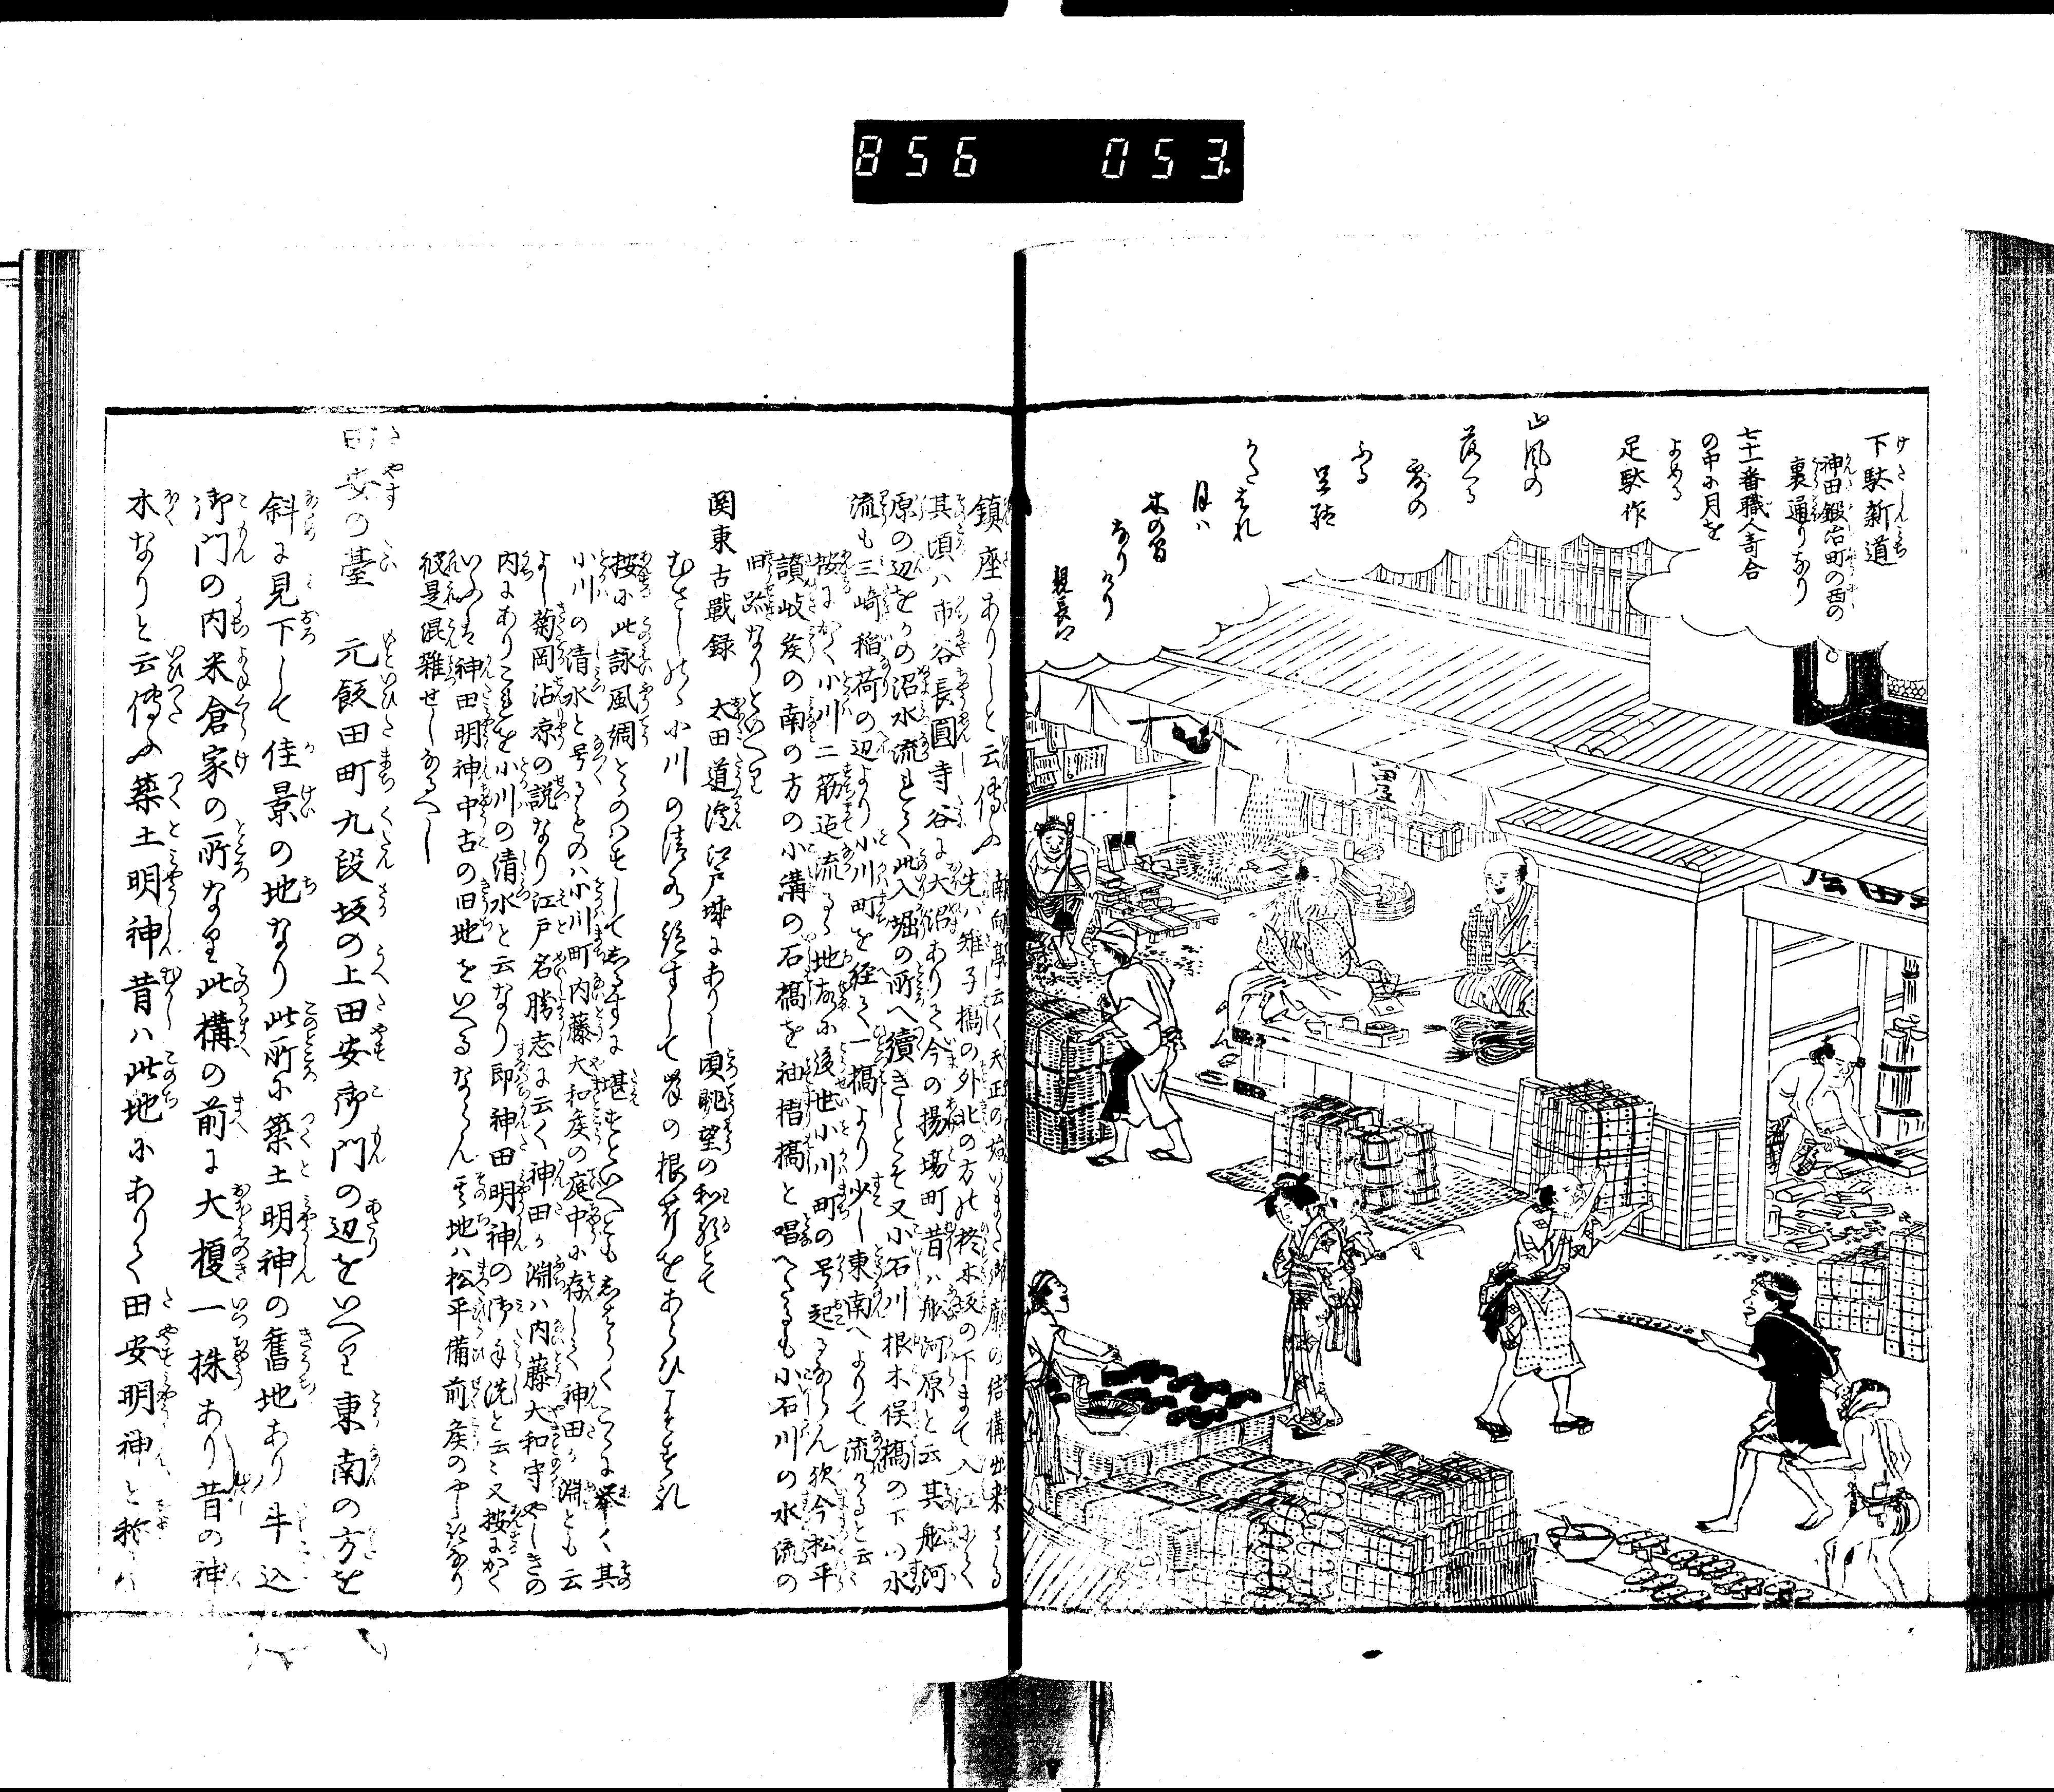 856 053
下駄新道
神田鍛冶町の西の
裏通りなり
七十一番職人哥合
の中に月を
よめる
足駄作
山風の
落くる
露の
ふる
足駄
かたはれ
月ハ
木の間
なりけり
親長卿
田屋
鎮座ありしと云傳ふ
南向亭云く天正の始いまた御廓の結構出来さる
先ハ雉子橋の外北の方比柊木坂の下まて入江にて
其頃ハ市谷長圓寺谷に大沼ありて今の揚場町昔ハ船河原と云其船河
原の辺をかの沼水流れて此入堀の所へ續きしとそ又小石川根木俣橋の下の水
流も三崎稲荷の辺より小川町を経て一橋より少し東南へよりて流るゝと云
按にかく小川二筋迄流るゝ地故に後世小川町の号起るならん欤今松平
讃岐矦の南の方の小溝の石橋を袖摺橋と唱へたるも小石川の水流の
旧跡なりといへり
関東古戦録 太田道灌江戸城にありし頃眺望の和歌とて
むさし野の小川の清水絶すして岸の根芹をあらひこそすれ
按に此詠風調とゝのハすして しるすに堪すといへともしはらくこゝに挙く其
小川の清水と号るものハ小川町内藤大和矦の庭中に存して神田か淵とも云
よし菊岡沾凉の説なり江戸名勝志に云く神田か淵ハ内藤大和守やしきの
内にありこれを小川の清水と云なり即神田明神の御手洗と云々又按にかく
いふハ神田明神中古の旧地をいへるならん其地ハ松平備前矦のやしきなり
彼是混雑せしなるへし
田安の臺 元飯田町九段坂の上田安御門の辺をいへり東南の方を
斜に見下して佳景の地なり此所に築土明神の舊地あり牛込
御門の内米倉家の所なり此構の前に大榎一株あり昔の神
木なりと云傳ふ築土明神昔ハ此地にありて田安明神と称